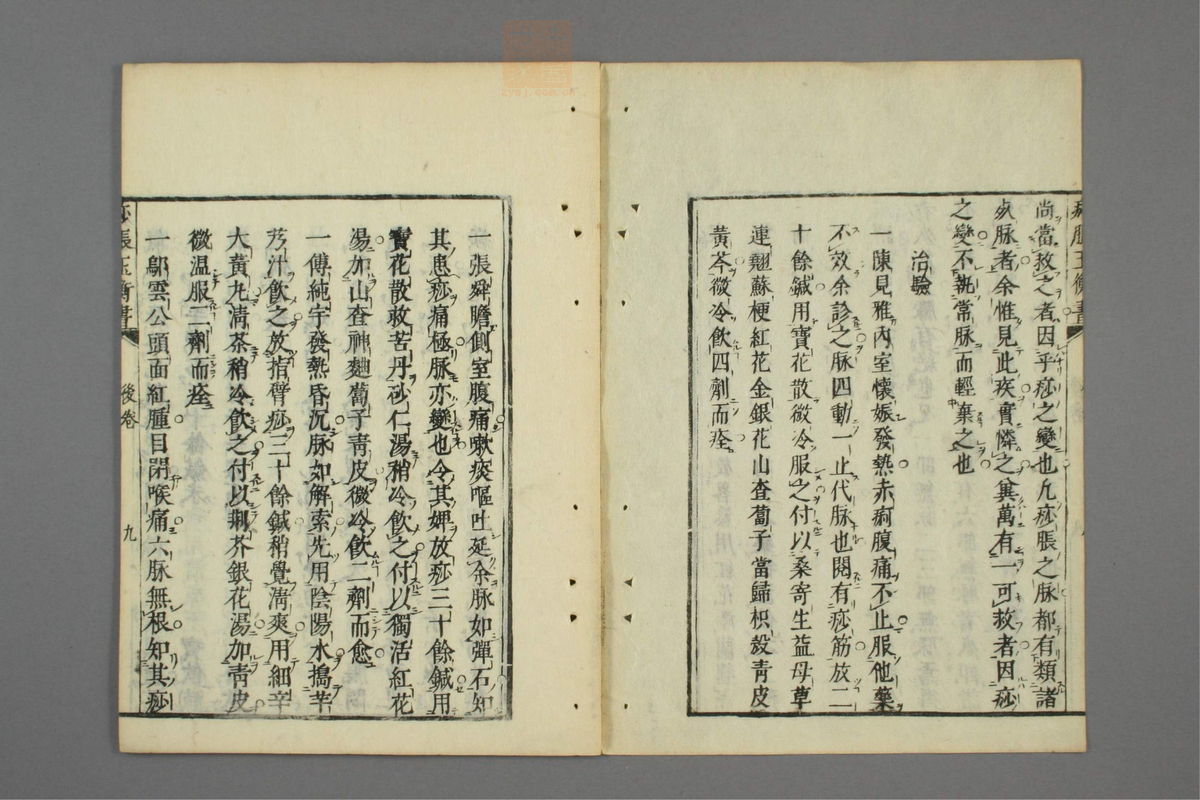 尚當救之者因乎痧之變也凡痧脹之脉都有類諸
死脉者余惟見此疾實憐之冀萬有一可救者因痧
之變不執常脉而輕棄之也
治驗
一陳見雅內室懷娠發熱赤痢腹痛不止服他藥
不效余診之脉四動一止代脉也閱有痧筋放二
十餘鍼用寶花散微冷服之付以桑寄生益母草
連翹蘇梗紅花金銀花山查蔔子當歸枳殼青皮
黃芩微冷飲四劑而痊
一張舜瞻側室腹痛嗽痰嘔吐延余脉如彈石知
其患痧痛極脉亦變也令其婢放痧三十餘鍼用
寶花散救苦丹砂仁湯稍冷飲之付以獨活紅花
湯加山查神麯蔔子青皮微冷飲二劑而愈
一傅純宇發熱昏沉脉如解索先用陰陽水搗芋
艿汁飲之放指臂痧三十餘鍼稍覺清爽用細辛
大黃丸清茶稍冷飲之付以荆芥銀花湯加青皮
微温服二劑而痊
一鄔雲公頭面紅腫目閉喉痛六脉無根知其痧
痧脹玉衡書
後卷
九